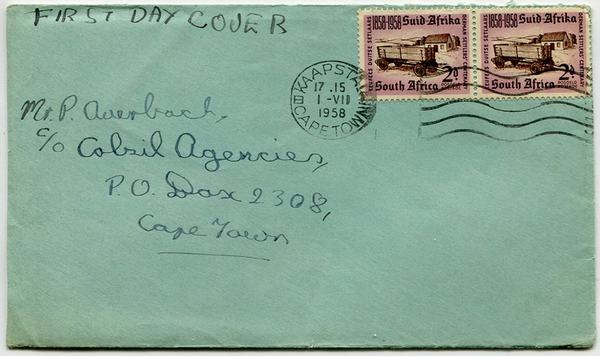 FIRST DAY COVER
1858-1958 Suid-Afrika
EEUFEES DUITSE SETLAARS
GERMAN SETTLERS CENTENARY
2d
South Africa
1858-1958 Suid-Afrika
EEUFEES DUITSE SETLAARS
GERMAN SETTLERS CENTENARY
2d
South Africa
KAAPSTAD
17.15
1-VII
1958
CAPETOWN
Mr. P. Auerbach,
c/o Cobsil Agencies,
P.O. Box 2308,
Cape Town